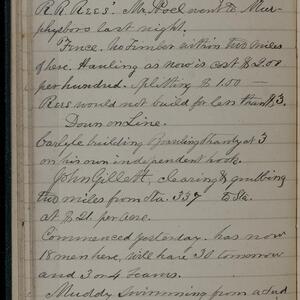 R. R. Rees'. Mr. Roel went to Mur-
physboro last night.
Fence. No Timber within two miles
of here. Hauling as now is cost $2.00
per hundred. Splitting $1.00 —
Rees would not build for less than $3.
Down on Line.
Carlyle building Boarding Shanty at 3
on his own independent hook.
John Gillett, clearing & grubbing
two miles from Sta. 337 to Sta.
at $21. per acre.
Commenced yesterday. has now
18 men here, will have 30 tomorrow
and 3 or 4 teams.
Muddy swimming from a